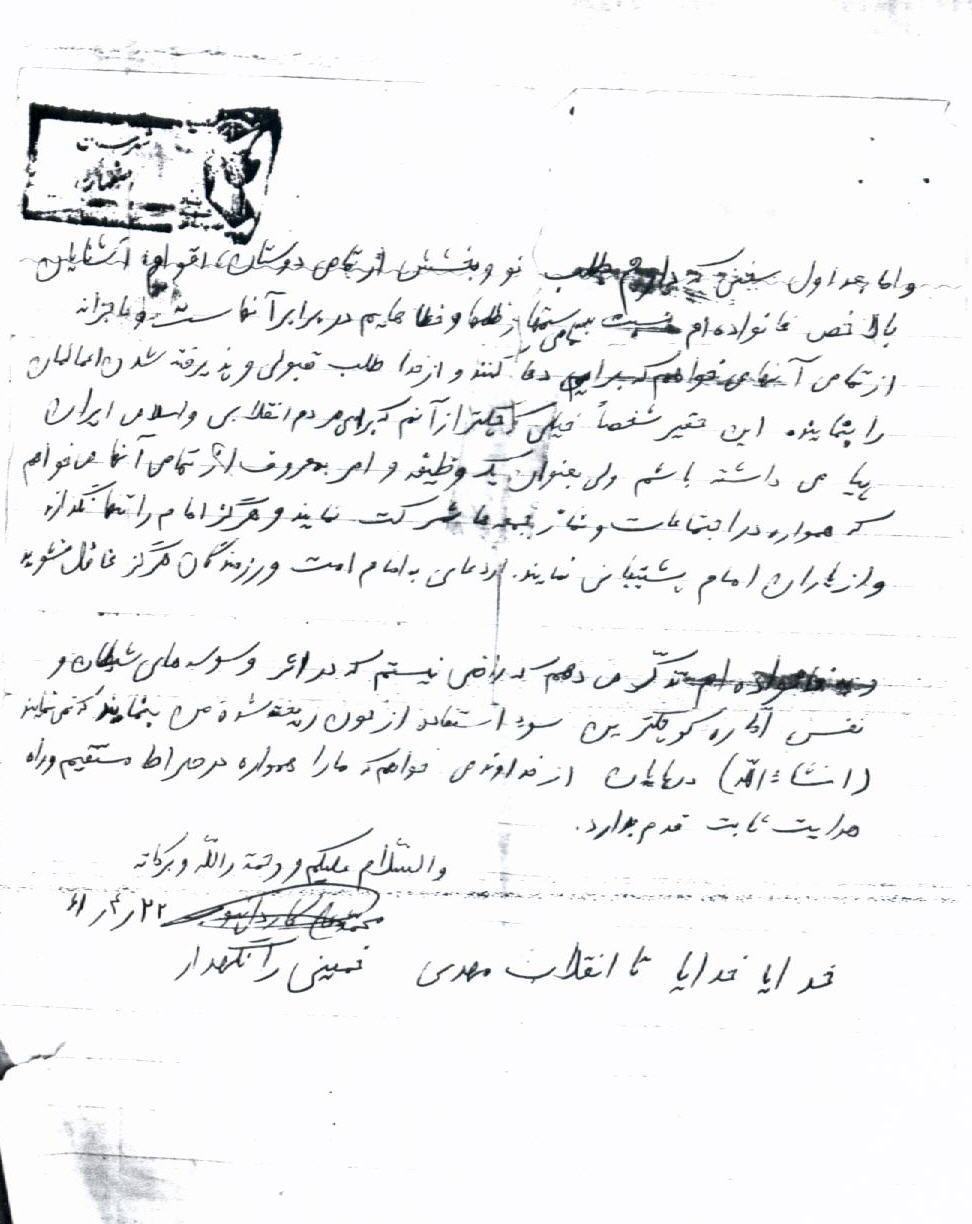 شهرستان
و اما بعد اول سخنی که دارم طلب عفو و بخشش از تمامی دوستان، اقوام، آشنایان
بالاخص خانواده ام نسبت به تمامی ستمها و ظلمها و خطا هایم در برابر آنها است و عاجزانه
از تمامی آنها می خواهم که برایم دعا کنند و از خدا طلب قبولی و پذیرفته شدن اعمالمان
را بنمایند. این حقیر شخصاً خیلی کوچکتر از آنم که برای مردم انقلابی و اسلامی ایران
پیامی داشته باشم ولی بعنوان یک وظیفه و امر به معروف از تمامی آنها می خواهم
که همواره در اجتماعات و نماز جمعه ها شرکت نمایند و هرگز امام را تنها نگذارند
و از یاران امام پشتیبانی نمایند. از دعای به امام امت و رزمندگان هرگز غافل نشوید
و به خانواده ام تذکّر می دهم که راضی نیستم که در اثر وسوسه های شیطان و
نفس امّاره کوچکترین سوء استفاده از خون ریخته شده من بنمایند که نمی نمایند
(انشاءالله) در پایان از خداوند می خواهم که ما را همواره در صراط مستقیم و راه
هدایت ثابت قدم بدارد.
والسّلام علیکم و رحمة الله و برکاته
۲۲ر۴ر۶۱
خدایا خدایا تا انقلاب مهدی خمینی را نگهدار